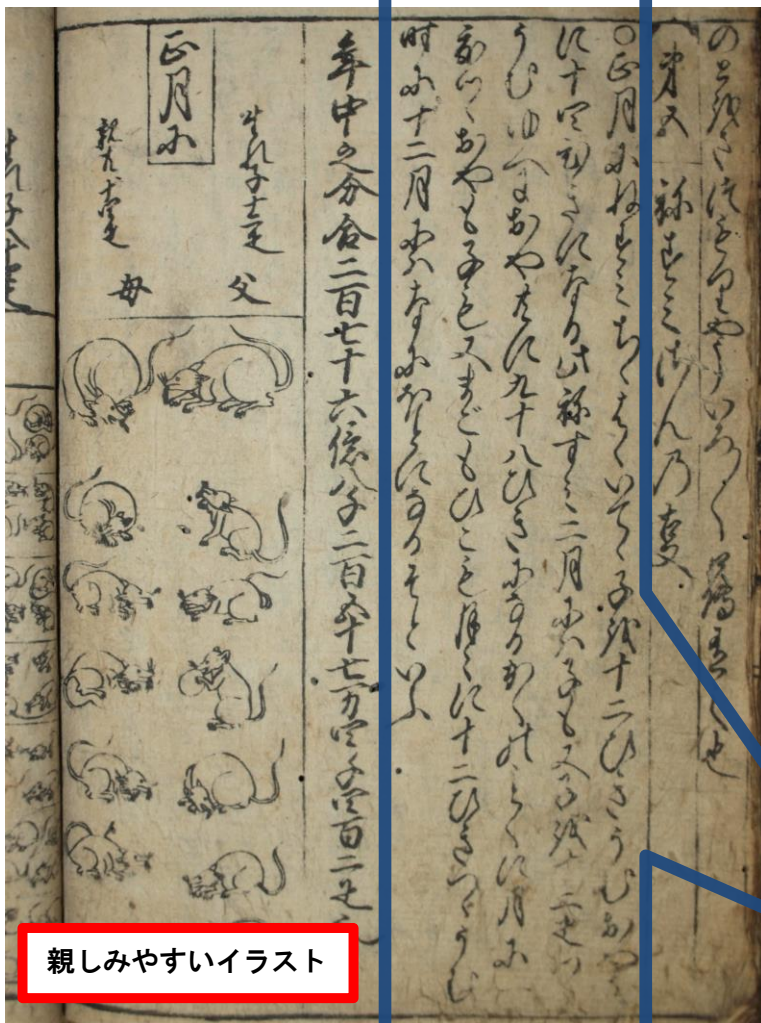 第五 祢ずミさんの事
○正月にねずミちゝはゝいてゝ子を十二ひきうむおやとも
に十四ひきになる此祢すミ二月にハ子も又子を十二疋つゝ
うむゆへにおやともに九十八ひきになるかくのことくに月に
一度つゝおやも子も又まごもひこも月〻に十二ひきつゝうむ
時に十二月にハなにほとになるそといふ
年中之分合二百七十六億八千二百五十七万四千四百二疋也
生れ子十二疋
正月に
親共ニ十四疋
父
母
親しみやすいイラスト